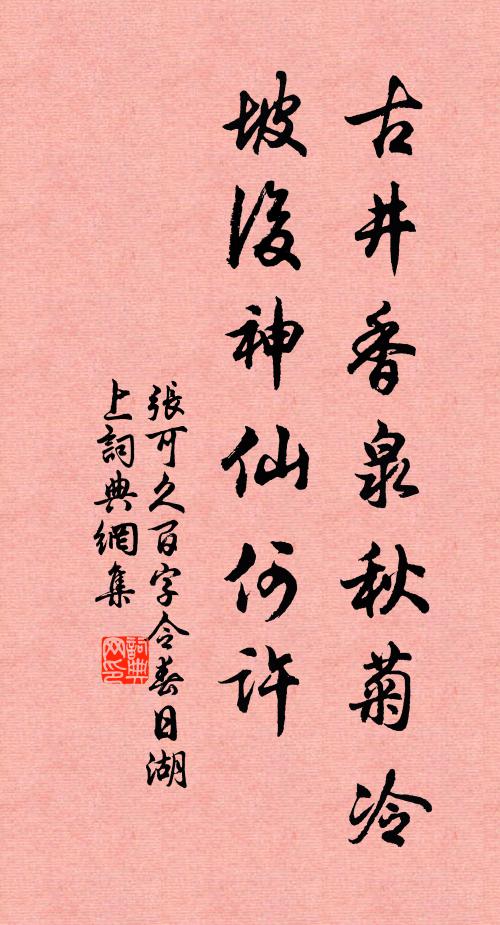 古井香泉秋菊冷
坡後神仙何許
張可久百字令春日湖
上詞典網集
詞典网印